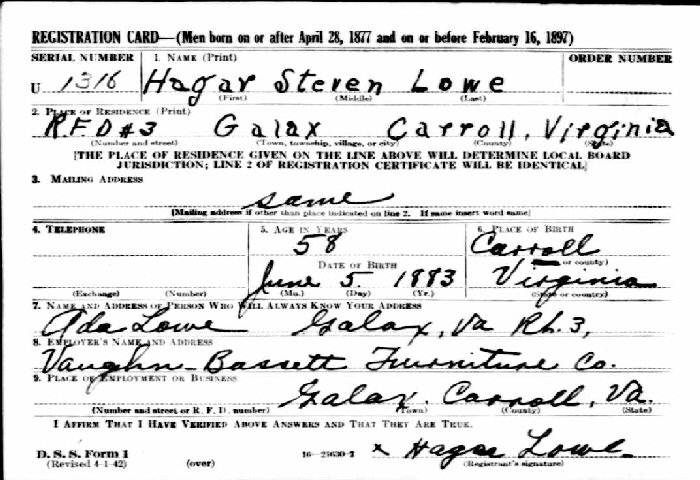 REGISTRATION CARD—(Men born on or after April 28, 1877 and on or before February 16, 1897)
SERIAL NUMBER 1. NAME (Print) ORDER NUMBER
U 1316 Hagar Steven Lowe
(First) (Middle) (Last)
2. PLACE OF RESIDENCE (Print)
R.F.D #3 Galax Carroll, Virginia
(Number and street) (Town, township, village, or city) (County) (State)
[THE PLACE OF RESIDENCE GIVEN ON THE LINE ABOVE WILL DETERMINE LOCAL BOARD
JURISDICTION; LINE 2 OF REGISTRATION CERTIFICATE WILL BE IDENTICAL]
3. MAILING ADDRESS
same
[Mailing address if other than place indicated on line 2. If same insert word same]
4. TELEPHONE 5. AGE IN YEARS 6. PLACE OF BIRTH
58 Carroll
DATE OF BIRTH (Town or county)
June 5. 1883 Virginia
(Exchange) (Number) (Mo.) (Day) (Yr.) (State or country)
7. NAME AND ADDRESS OF PERSON WHO WILL ALWAYS KNOW YOUR ADDRESS
Ada Lowe Galax, Va Rt. 3,
8. EMPLOYER'S NAME AND ADDRESS
Vaughn-Bassett Furniture Co.
9. PLACE OF EMPLOYMENT OR BUSINESS
Galax. Carroll, Va.
(Number and street or R. F. D. number) (Town) (County) (State)
I AFFIRM THAT I HAVE VERIFIED ABOVE ANSWERS AND THAT THEY ARE TRUE.
D. S. S. Form 1
(Revised 4-1-42) (over) 16—21630-2 x Hagar Lowe.
(Registrant's signature)